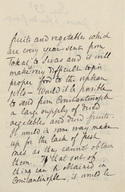 fruits and vegetables which
are every year sent from
Tokat to Sivas and it will
make very difficult to get
proper food to the orphan
girls. Would it be possible
to send from Constantinople
a large supply of dried
vegetables and dried fruits.
It would in some way make
up for the lack of fresh
ones as they cannot obtain
them. If that sort of
thing can be obtained in
Constantinople, it would be